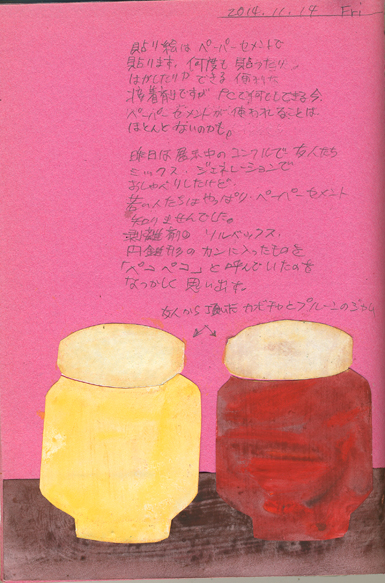 2014.11.14 Fri
貼り絵はペーパーセメントで
貼ります。何度も貼ったり、
はがしたりできる便利な
接着剤ですが PCで何でもできる今、
ペーパーセメントが使われることは
ほとんどないのかも。
昨日は展示中のユンクルで友人たち
ミックス・ジェネレーションで
おしゃべりしたけど、
若い人たちはやっぱり・ペーパーセメント
知りませんでした。
剥離剤の ソルベックス.
円錐形のカンに入ったものを
「ペコペコ」と呼んでいたのを
なつかしく 思い出す。
友人から頂いた カボチャとプルーンのジャム